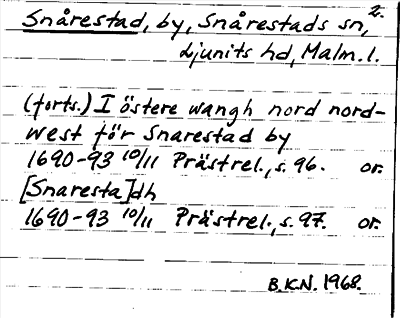 2.
Snårestad, by, Snårestads sn,
Ljunits hd, Malm. l.
(forts.) I östere wangh nord nord-
west för Snarestad by
1690-93 10/11 Prästrel., s. 96. or.
[Snaresta]dh
1690-93 10/11 Prästrel., s. 97. or.
B.K.N. 1968.